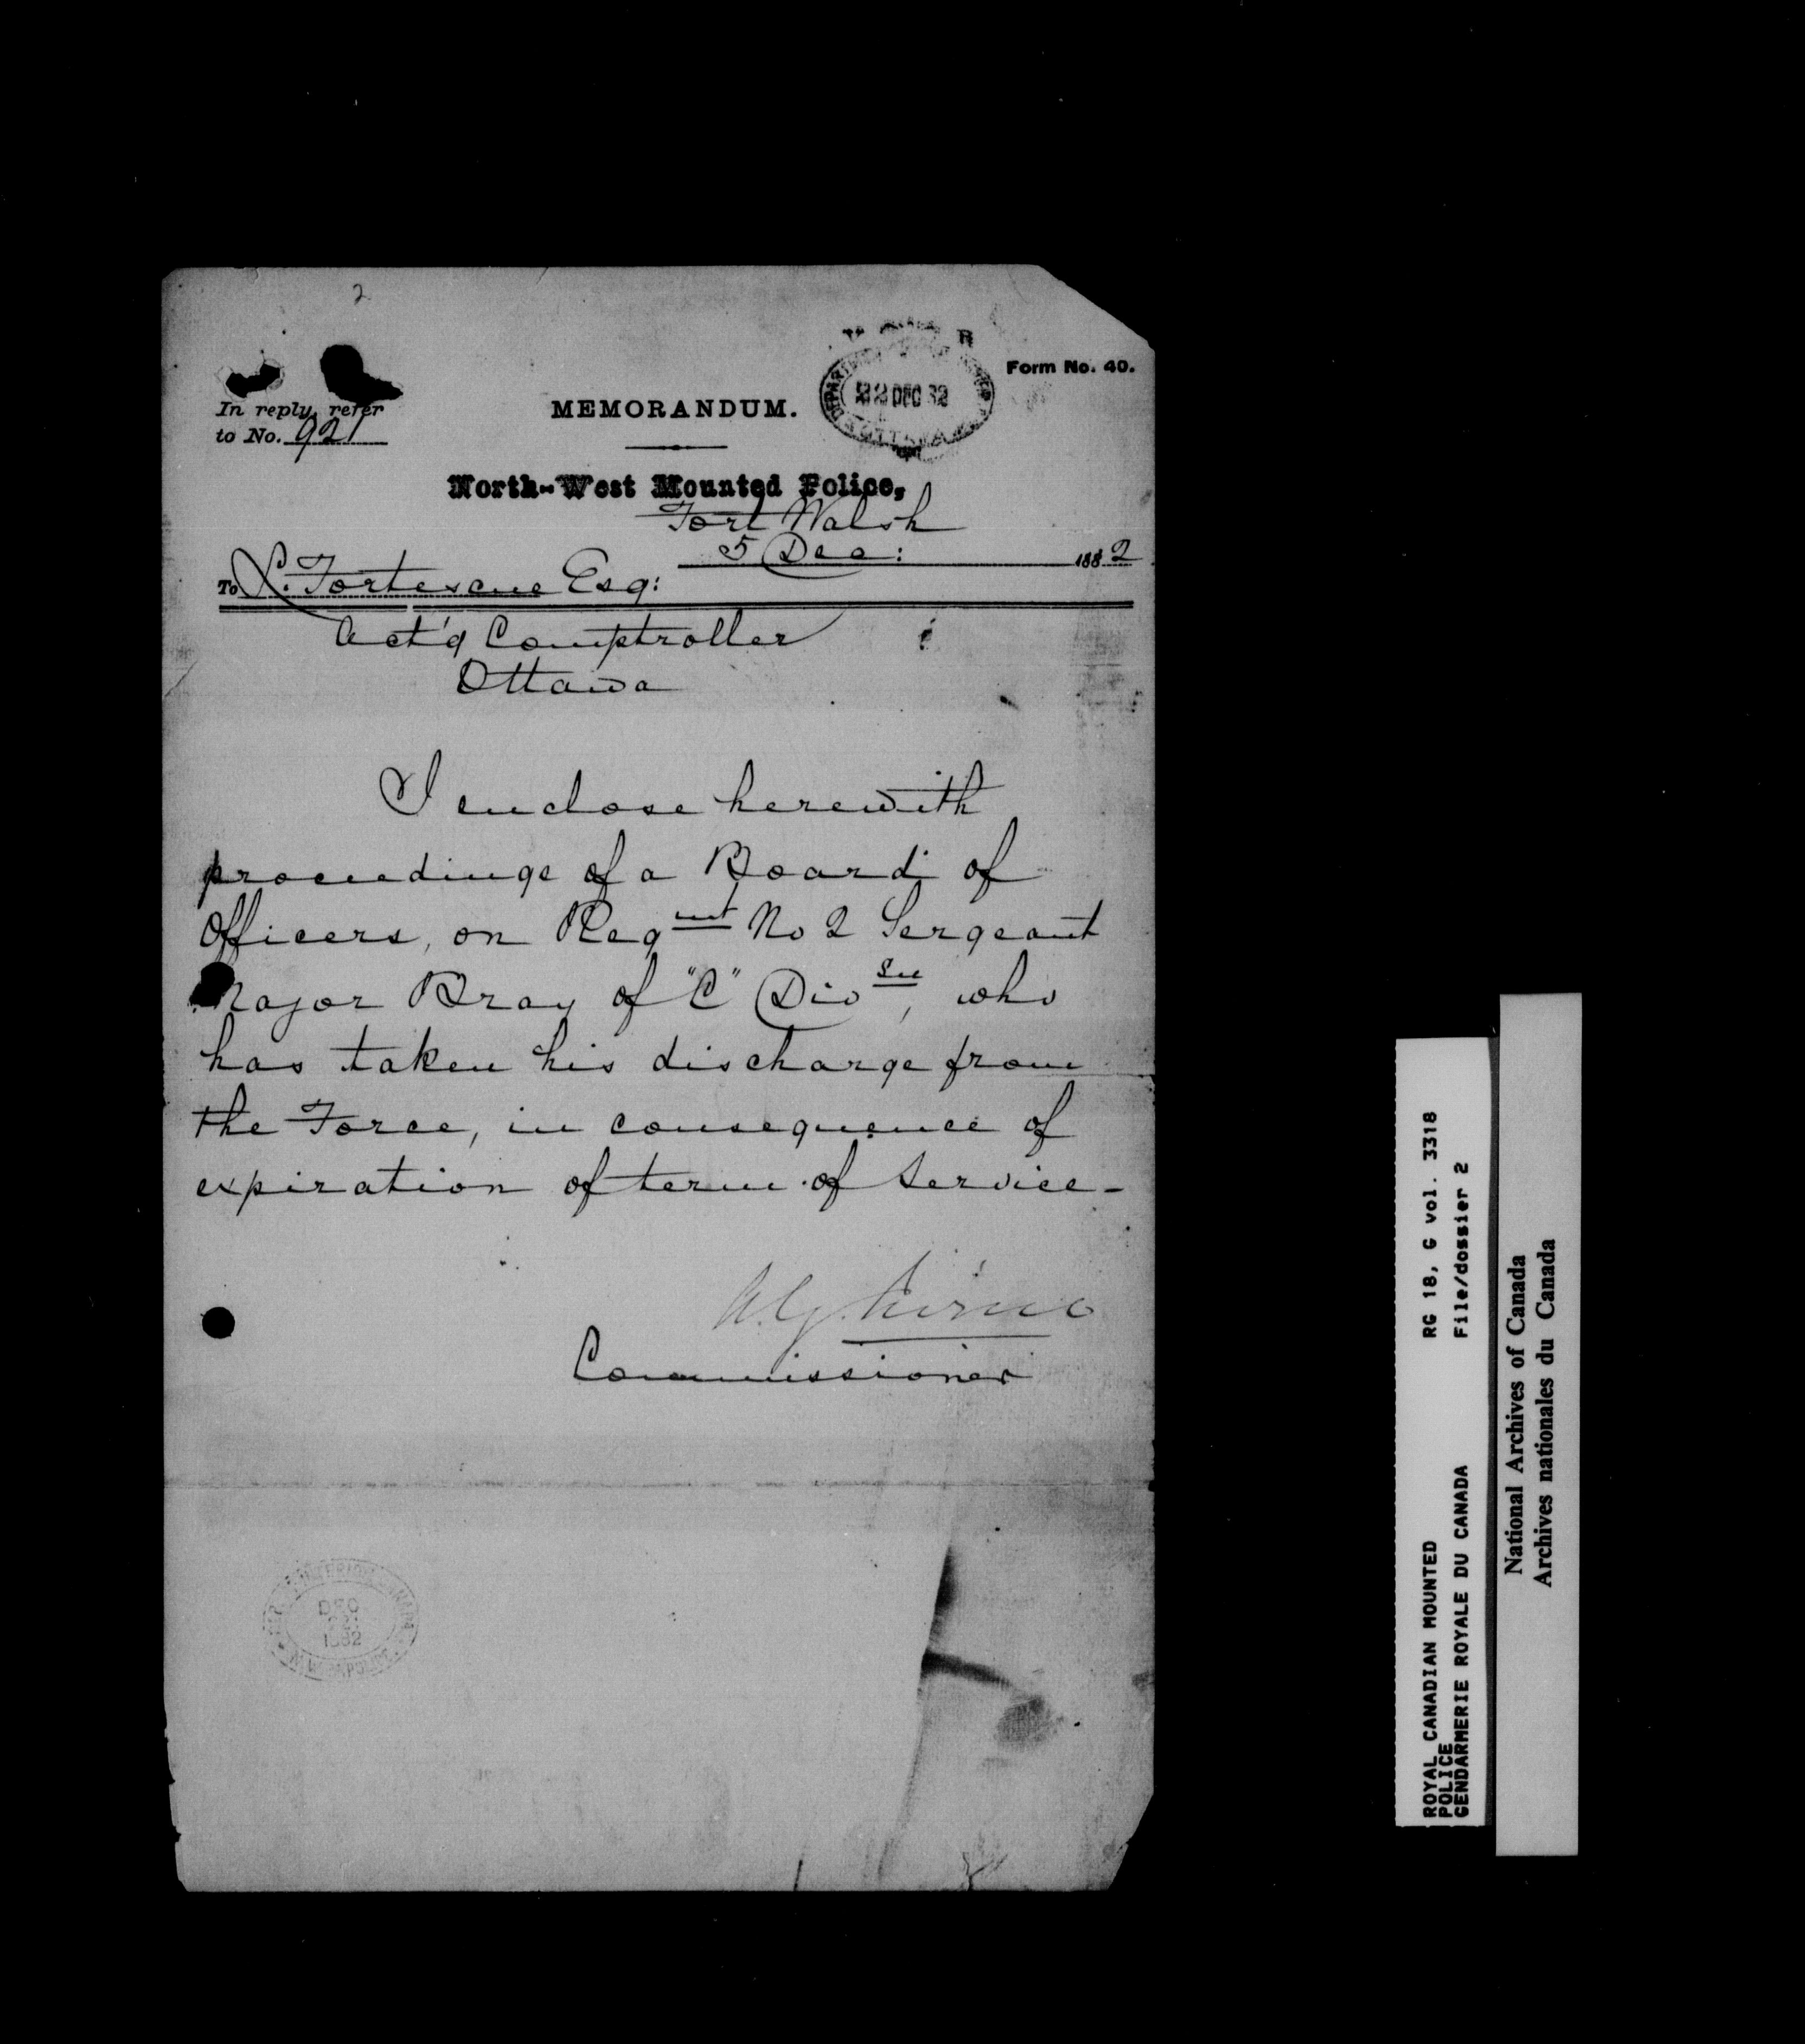 2
Form No. 40.
In reply, refer
to No. 921
MEMORANDUM.
22 DEC 82
OTTAWA
North-West Mounted Police,
Fort Walsh
5 Dec: 1882
To L. Fortescue Esq:
Act'g Comptroller
Ottawa
I enclose herewith
proceedings of a Board of
Officers, on Regmt No 2 Sergeant
Major Bray of "C" Divsn, who
has taken his discharge from
the Force, in consequence of
expiration of term of Service-
A.G. Irvine
Commissioner
DEC
1882
ROYAL CANADIAN MOUNTED
POLICE
GENDARMERIE ROYALE DU CANADA
RG 18, G vol. 3318
File/dossier 2
National Archives of Canada
Archives nationales du Canada